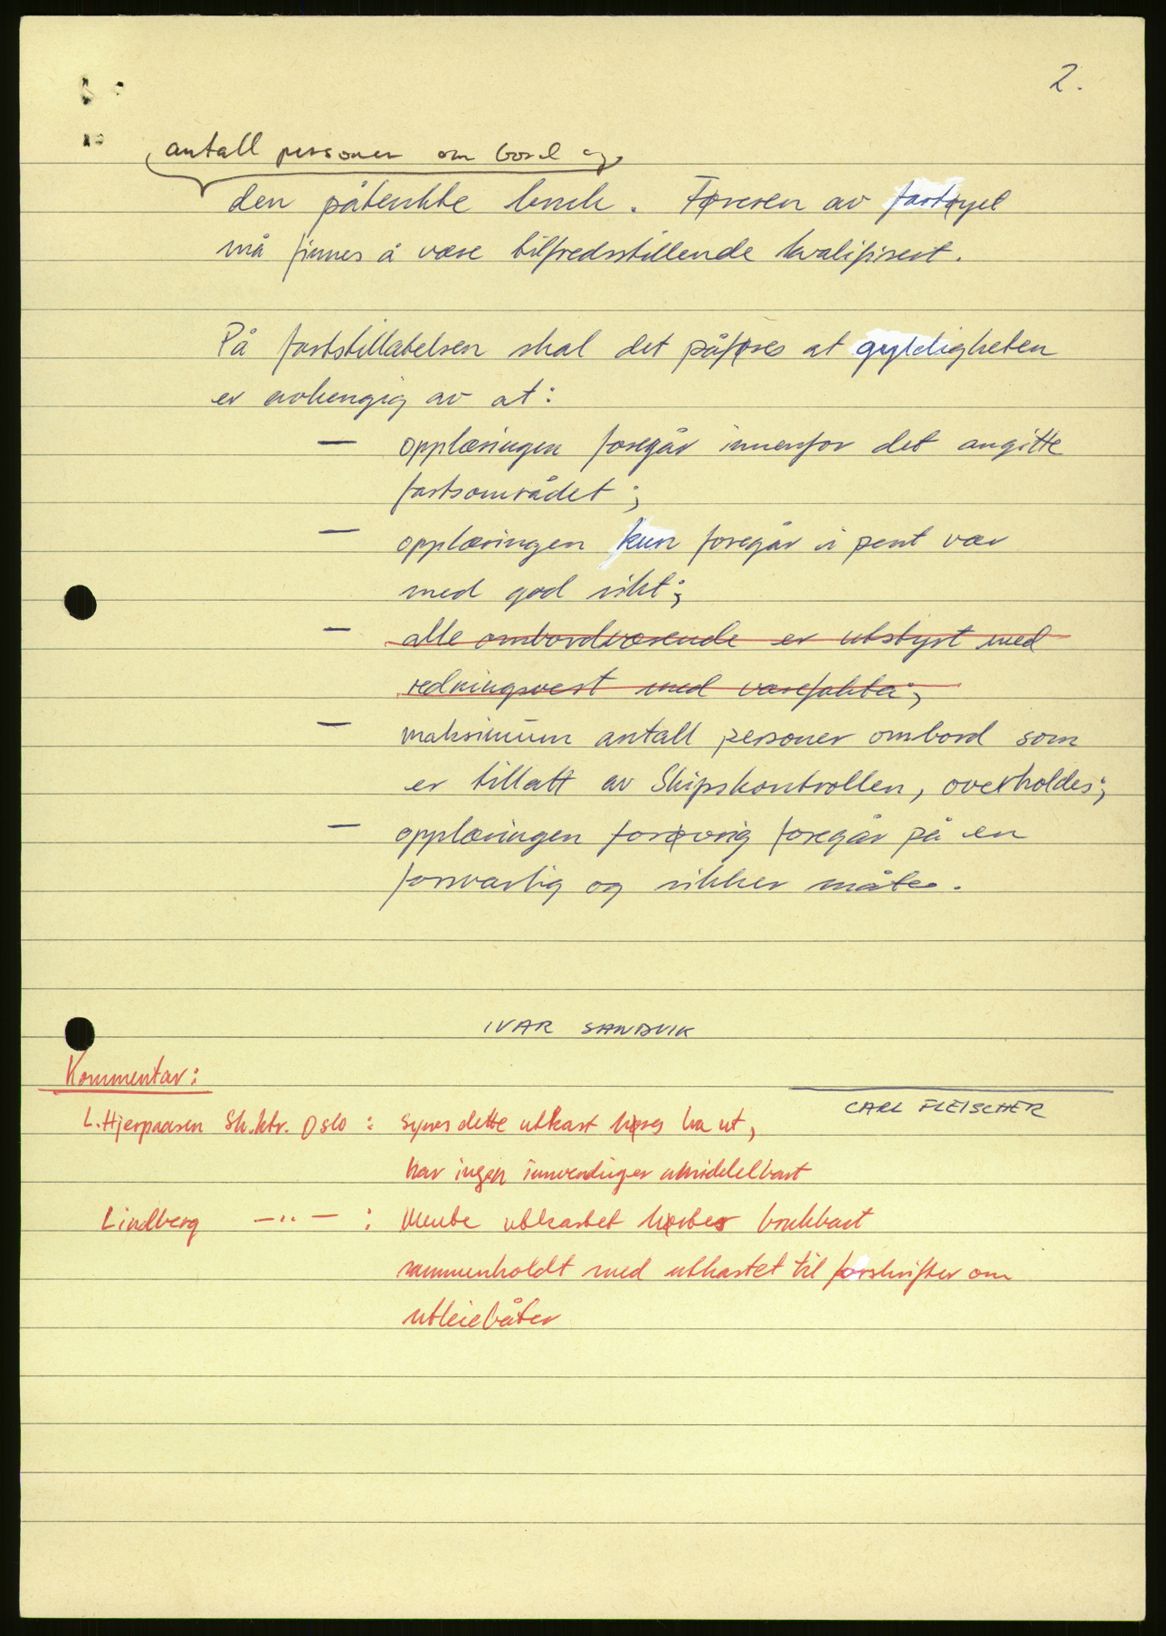 2.
antall personer om bord og
den påtenkte bruk. Føreren av fartøyet
må finnes å være tilfredsstillende kvalifisert.
På fartstillatelsen skal det påføres at gyldigheten
er avhengig av at:
— opplæringen foregår innenfor det angitte
fartsområdet;
— opplæringen kun foregår i pent vær
med god sikt;
— alle ombordværende er utstyrt med
redningsvest med
— maksimum antall personer ombord som
er tillatt av Skipskontrollen, overholdes;
— opplæringen forøvrig foregår på en
forsvarlig og sikker måte.
IVAR SANDVIK
Kommentar:
CARL FLEISCHER
L. Hjerpaasen Sk.ktr. Oslo : Synes dette utkast høres bra ut,
har ingen innvendinger umiddelbart
Lindberg —..— : Mente utkastet hørtes brukbart
sammenholdt med utkastet til forskrifter om
utleiebåter